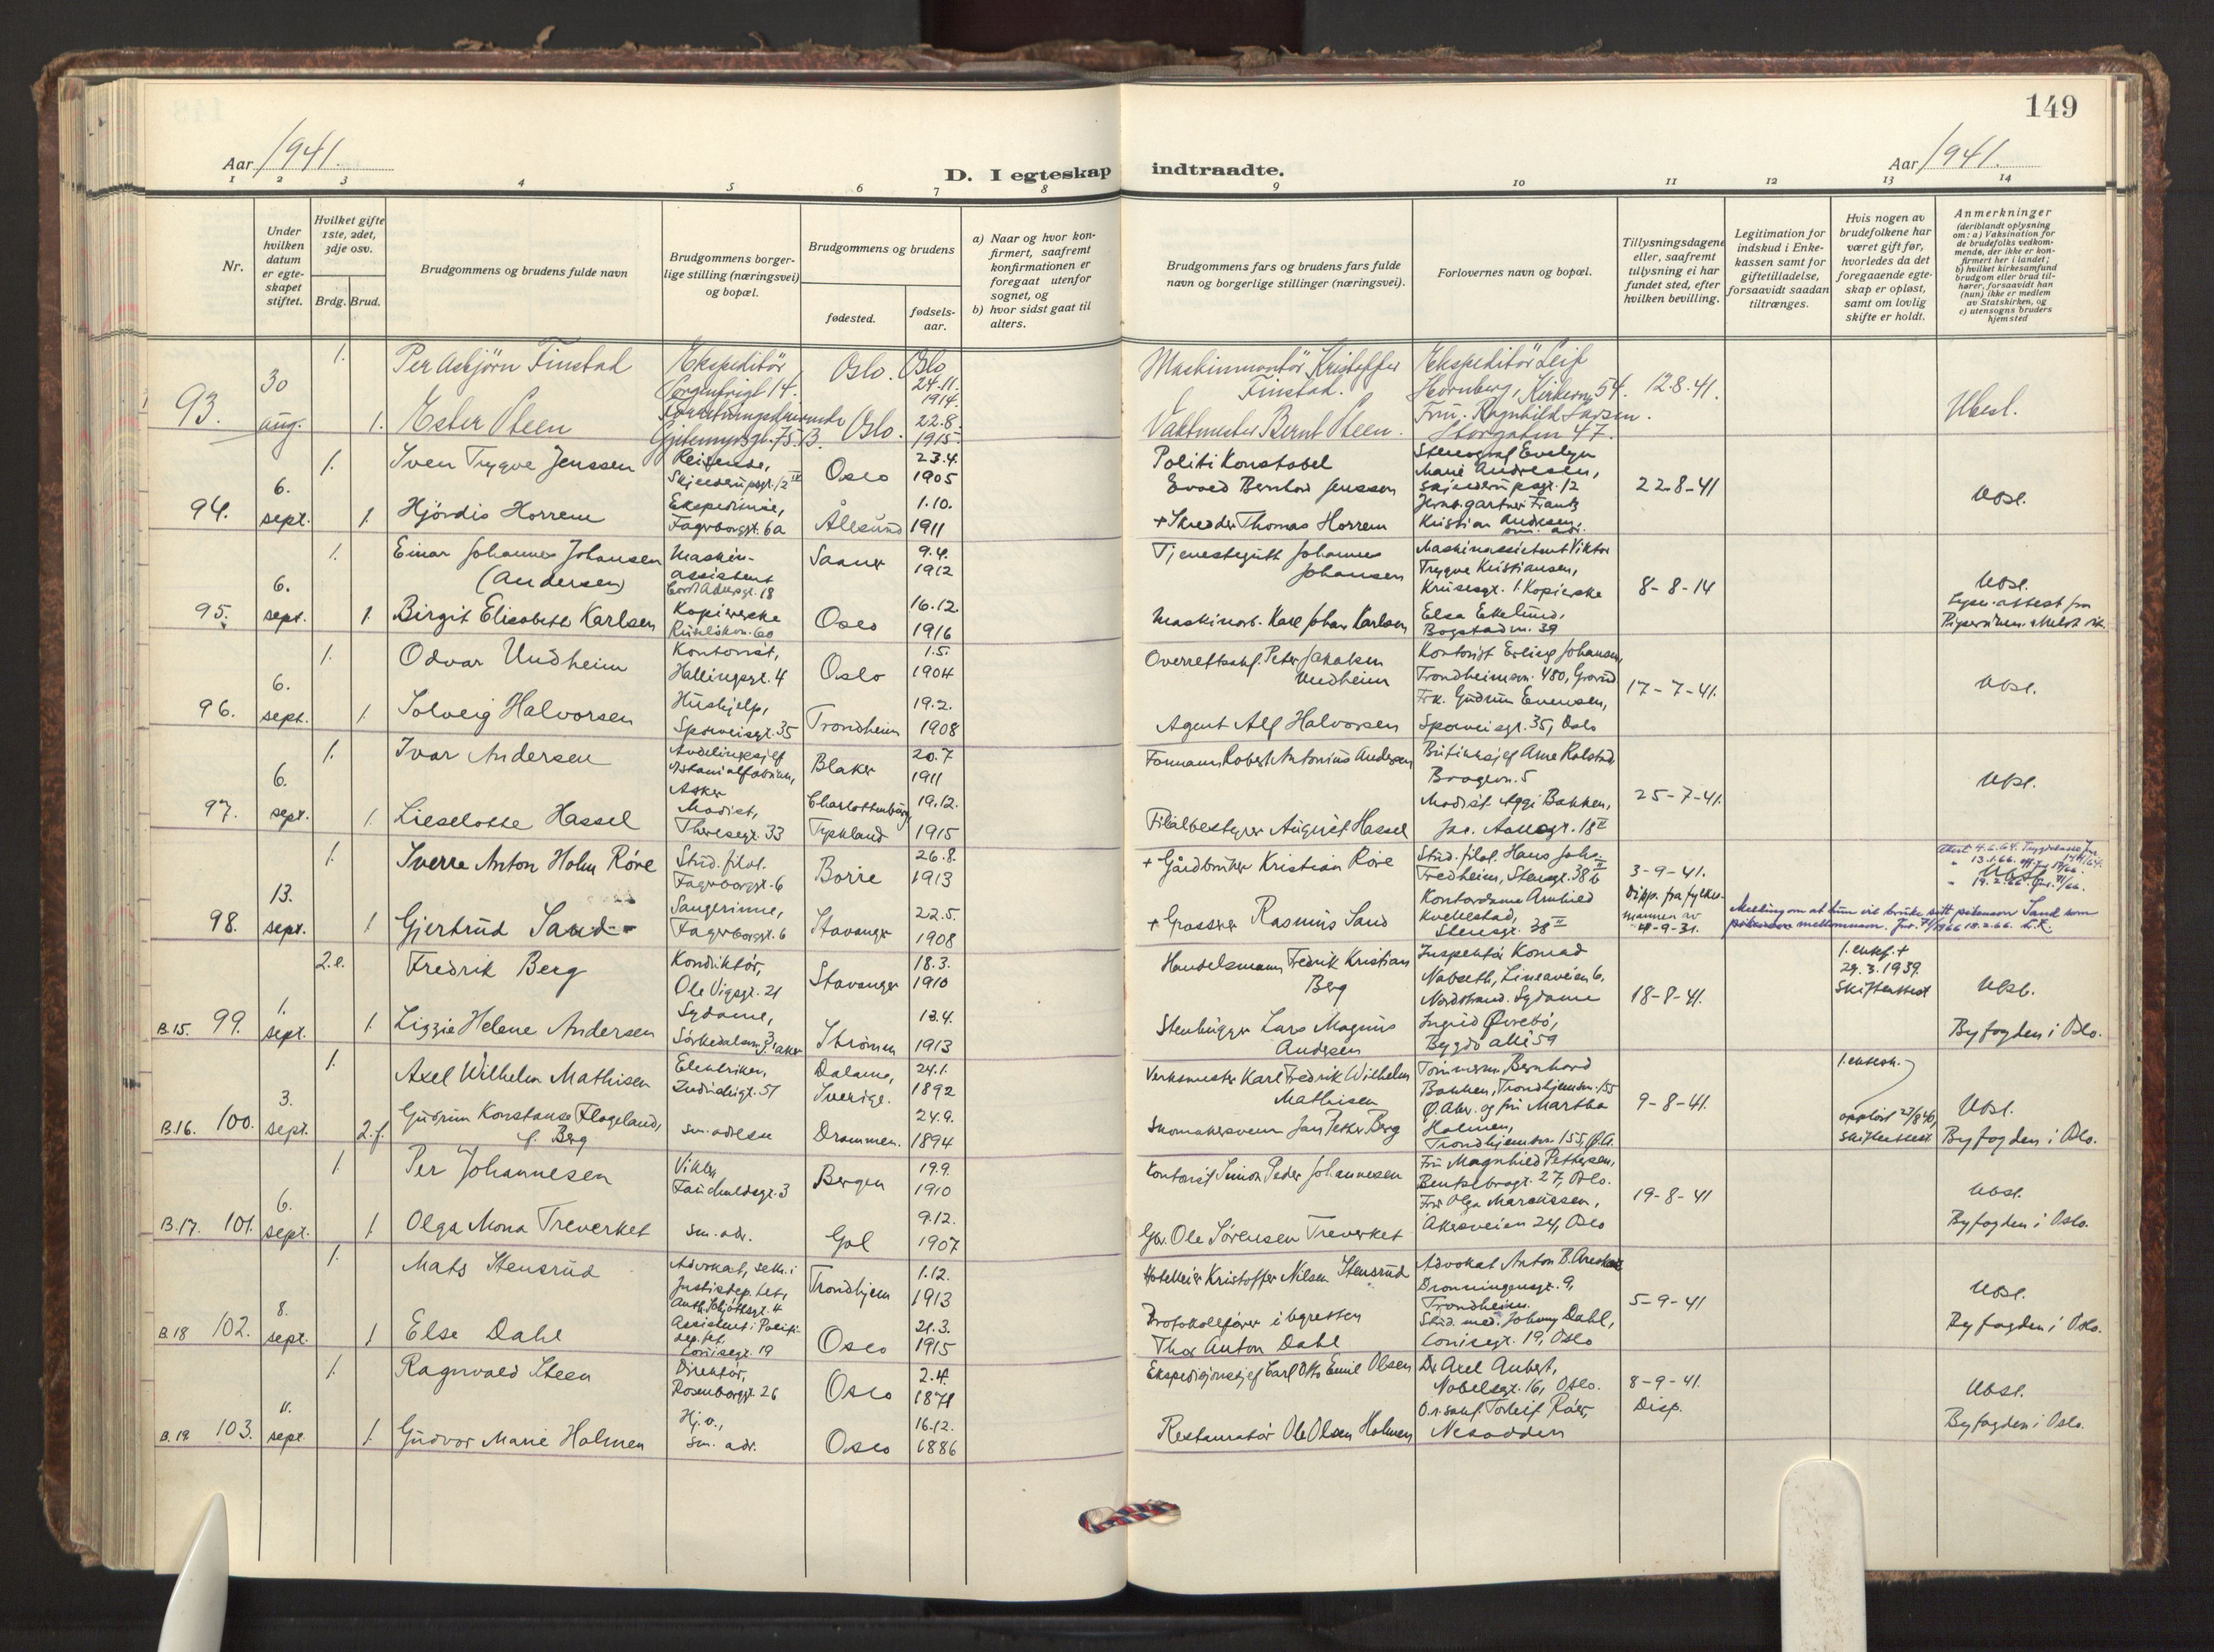 149
Aar 1941.
D. I egteskap indtraadte.
Aar 1941.
1 2 3 4 5 6 7 8 9 10 11 12 13 14
Nr.
Under hvilken datum er egteskapet stiftet.
Hvilket gifte 1ste, 2det, 3dje osv.
Brdg. Brud.
Brudgommens og brudens fulde navn
Brudgommens borgerlige stilling (næringsvei) og bopæl.
Brudgommens og brudens
fødested.
fødselsaar.
a) Naar og hvor konfirmert, saafremt konfirmationen er foregaat utenfor sognet, og
b) hvor sidst gaat til alters.
Brudgommens fars og brudens fars fulde navn og borgerlige stillinger (næringsvei).
Forlovernes navn og bopæl.
Tillysningsdagene eller, saafremt tillysning ei har fundet sted, efter hvilken bevilling.
Legitimation for indskud i Enkekassen samt for giftetilladelse, forsaavidt saadan tiltrænges.
Hvis nogen av brudefolkene har været gift før, hvorledes da det foregaaende egteskap er opløst, samt om lovlig skifte er holdt.
Anmerkninger
(deriblandt oplysning om: a) Vaksination for de brudefolks vedkommende, der ikke er konfirmert her i landet;
b) hvilket kirkesamfund brudgom eller brud tilhører, forsaavidt han (hun) ikke er medlem av Statskirken, og
c) utensogns bruders hjemsted
93. 30 aug.
1. Per Asbjörn Finstad Ekspeditör Sorgenfrigt 14. Oslo. Oslo 24.11. 1914
Maskinmontör Kristoffer Finstad. Ekspeditör Leif Hornberg, Kirkevn. 54. 12.8.41.
1. Ester Steen 75 B. Oslo. 22.8. 1915.
Vaktmester Bernt Steen. Fru Ragnhild Larsen. Storgaten 47. Ubesl.
94. 6. sept.
1. Sven Trygve Jenssen Reisende, Skjelderupsgt. 12 IV Oslo 23.4. 1905
Politi Konstabel Bernhard Jenssen Stenograf Evelyn Marie Andresen, Skjelderupsgt. 12 22-8-41
1. Hjördis Horrem Ekspeditrise, Fagerborggt. 6a Ålesund 1.10. 1911
+ Skredder Thomas Horrem Frantz Kristian Andresen, sm. adr. Ubsl.
95. 6. sept.
1. Einar Johannes Johansen (Andersen) Maskinassistent Cort Adelersgt. 18 9.4. 1912
Tjenestegutt Johannes Johansen Maskinassistent Viktor Trygve Kristiansen, Krusesgt. 1. Kopierske 8-8-14
1. Birgit Elisabeth Karlsen Kopierske 60 Oslo 16.12. 1916
Maskinarb. Karl Johan Karlsen Elsa Ekelund, Bogstadvn. 39 Ubsl.
96. 6. sept.
1. Odvar Undheim Kontorist, Hallingsgt. 4 Oslo 1.5. 1904
Overrettssakf. Peter Jakobsen Undheim Kontorist Erling Johansen, Trondheimsvn. 480, Grorud 17-7-41.
1. Solveig Halvorsen Hushjelp, Sporveisgt. 35 Trondheim 19.2. 1908
Agent Alf Halvorsen Frk. Gudrun Evensen, Sporveisgt. 35, Oslo Ubsl.
97. 6. sept.
1. Ivar Andersen Avdelingssjef Asker Blaker 20.7 1911
Formann Robert Antonius Andersen Butikksjef Arne Rolstad Bragevn. 5
1. Lieselotte Hassel Modist, Theresegt. 33 Charlottenburg Tyskland 19.12. 1915
Filialbestyrer August Hassel Modist Aggi Bakken, Jac. Aallsgt. 18 II 25-7-41. Ubsl.
98. 13. sept.
1. Sverre Anton Holm Röre Stud. filol. Fagerborggt. 6 Borre 26.8. 1913
+ Gårdbruker Kristian Röre Stud. filol. Hans Johs. Fredheim, Stensgt. 38 3-9-41.
1 Gjertrud Sand Sangerinne, Fagerborggt. 6 Stavanger 22.5. 1908
+ Grosserer Rasmus Sand Kontordame Arnhild Kvellestad, Stensgt. 38 II Disp. fra fylkesmannen av 4-9-31.
Melding om at hun vil bruke sitt pikenavn Sand som mellomnavn.
B.15. 99. 1. sept.
2.e. Fredrik Berg Konduktör, Ole Vigsgt. 21 Stavanger 18.3. 1910
Handelsmann Fredrik Kristian Berg Inspektör Konrad Nabseth, Lineaveien 6, Nordstrand. Sydame 18-8-41.
1. enkef. + 29.3.1939. Skifteattest Ubsl.
1. Lizzie Helene Andersen Sydame, Strömen 13.4. 1913
Stenhugger Lars Magnus Andersen Ingrid Øvrebö, Bygdö allé 59 Byfogden i Oslo.
B.16. 100. 3. sept.
1. Axel Wilhelm Mathisen Elektriker, 51 Dalarne, Sverige. 24.1. 1892
Verksmester Karl Fredrik Wilhelm Mathisen Tömmerm. Bernhard Bakken, Trondhjemsvn. 155 Ø. Aker. og fru Martha Holmen, Trondhjemsvn. 155, Ø.A. 9-8-41.
2.f. Gudrun Konstanse Flageland, f. Berg sm. adresse Drammen. 24.9. 1894
Skomakersvenn Jan Peter Berg
oppløst 27/8 40, skifteattest Ubsl. Byfogden i Oslo.
B.17. 101. 6. sept.
1. Per Johannesen Fauchaldsgt. 3 Bergen 19.9. 1910
Kontorist Simon Peder Johannesen Fru Magnhild Pettersen, Bentsebrogt. 27, Oslo. 19-8-41
1. Olga Mona Treverket sm. adr. Gol 9.12. 1907
Gbr. Ole Sörensen Treverket Fru Olga Marcussen, Akersveien 24, Oslo Ubsl. Byfogden i Oslo.
B.18 102. 8. sept.
1. Mats Stensrud Advokat, sekr. i Justisdep.tet, Anth. Schjöthsgt. 4 Trondhjem 1.12. 1913
Hotelleier Kristoffer Nilsen Stensrud Advokat Anton B. Dronningensgt. 9, Trondheim. 5-9-41
1 Else Dahl Assistent i Politidep.tet, Louisegt. 19 Oslo 21.3. 1915
Protokollförer i Thor Anton Dahl Stud. med. Johnny Dahl, Louisegt. 19, Oslo Ubsl. Byfogden i Oslo.
B.19 103. 11. sept.
1. Ragnvald Steen Direktör, Rosenborggt. 26 Oslo 2.4. 1871
Ekspedisjonssjef Carl Otto Emil Olsen Dr. Axel Aubert, Nobelsgt. 16, Oslo. 8-9-41. Disp.
1. Gudvor Marie Holmen Hj.v., sm. adr. Oslo 16.12. 1886
Restauratör Ole Olsen Holmen O.r.sakf. Torleif Nesodden Ubsl. Byfogden i Oslo.